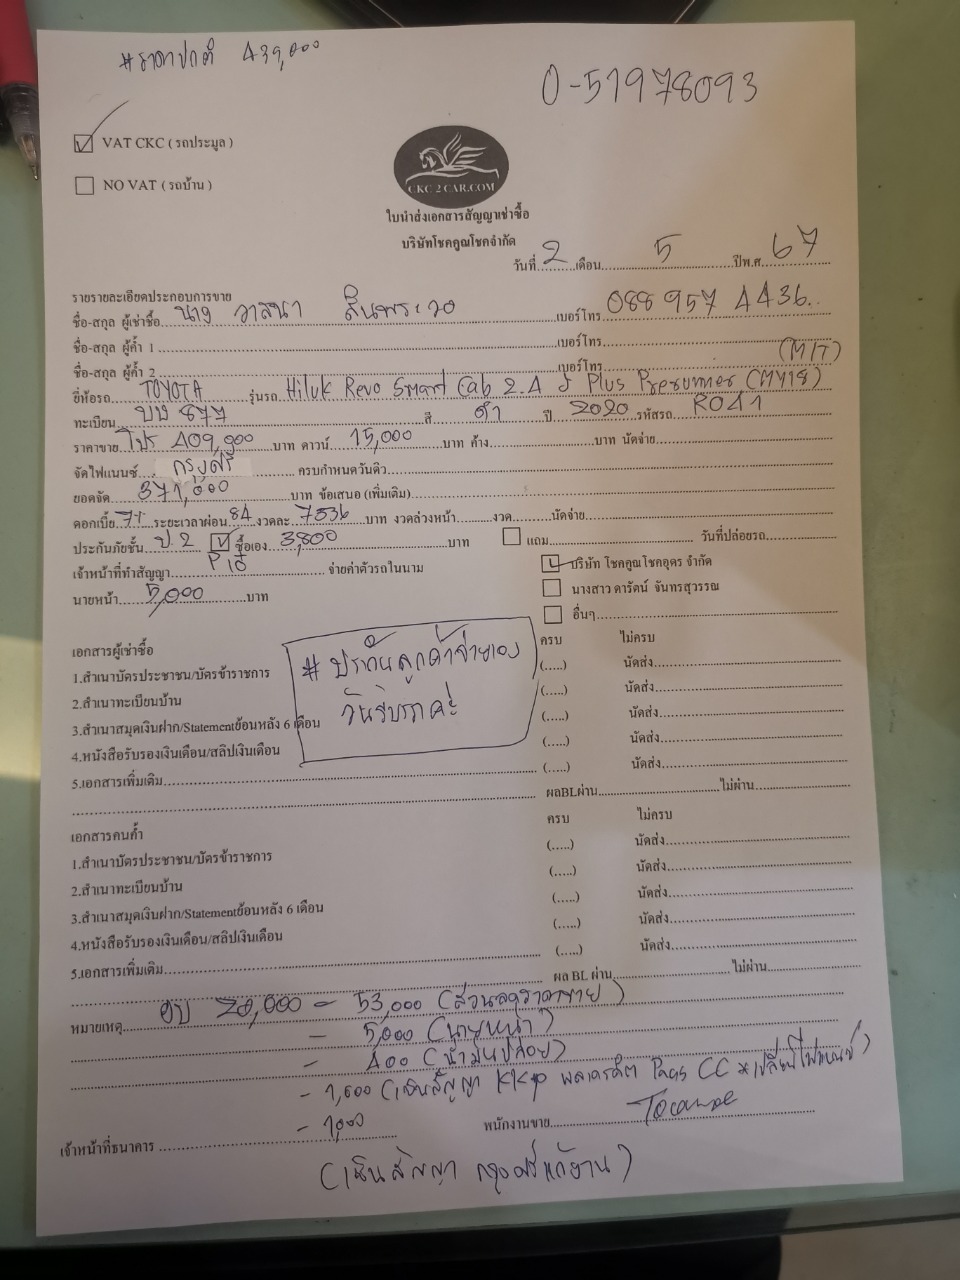 #ราคาปกติ 439,000
0-51978093
VAT CKC ( รถประมูล )
NO VAT ( รถบ้าน )
CKC 2 CAR.COM
ใบนำส่งเอกสารสัญญาเช่าซื้อ
บริษัทโชคคูณโชคจำกัด
วันที่ 2 เดือน 5 ปีพ.ศ. 67
รายรายละเอียดประกอบการขาย
ชื่อ-สกุล ผู้เช่าซื้อ นาง วาสนา เบอร์โทร 088 957 4436
ชื่อ-สกุล ผู้ค้ำ 1 เบอร์โทร
ชื่อ-สกุล ผู้ค้ำ 2 เบอร์โทร (M/T)
ยี่ห้อรถ TOYOTA รุ่นรถ Hilux Revo Smart Cab 2.4 J Plus Prerunner (MY18)
ทะเบียน 877 สี ดำ ปี 2020 รหัสรถ R041
ราคาขาย โปร 409,000 บาท ดาวน์ 15,000 บาท ค้าง บาท นัดจ่าย
จัดไฟแนนซ์ กรุงศรี ครบกำหนดวันดิว
ยอดจัด 371,000 บาท ข้อเสนอ (เพิ่มเติม)
ดอกเบี้ย 7% ระยะเวลาผ่อน 84 งวดละ 7536 บาท งวดล่วงหน้า งวด นัดจ่าย
ประกันภัยชั้น ป.2 ซื้อเอง 3,800 บาท แถม วันที่ปล่อยรถ
เจ้าหน้าที่ทำสัญญา จ่ายค่าตัวรถในนาม บริษัท โชคคูณโชคอุดร จำกัด
นายหน้า 5,000 บาท นางสาว ดารัตน์ จันทรสุวรรณ
อื่นๆ
เอกสารผู้เช่าซื้อ ครบ ไม่ครบ
1.สำเนาบัตรประชาชน/บัตรข้าราชการ (.....) นัดส่ง
2.สำเนาทะเบียนบ้าน (.....) นัดส่ง
3.สำเนาสมุดเงินฝาก/Statementย้อนหลัง 6 เดือน (.....) นัดส่ง
4.หนังสือรับรองเงินเดือน/สลิปเงินเดือน (.....) นัดส่ง
5.เอกสารเพิ่มเติม (.....) นัดส่ง
# ประกันลูกค้าจ่ายเอง
วันรับรถค่ะ
ผลBLผ่าน ไม่ผ่าน
เอกสารคนค้ำ ครบ ไม่ครบ
1.สำเนาบัตรประชาชน/บัตรข้าราชการ (.....) นัดส่ง
2.สำเนาทะเบียนบ้าน (.....) นัดส่ง
3.สำเนาสมุดเงินฝาก/Statementย้อนหลัง 6 เดือน (.....) นัดส่ง
4.หนังสือรับรองเงินเดือน/สลิปเงินเดือน (.....) นัดส่ง
5.เอกสารเพิ่มเติม (.....) นัดส่ง
ผล BL ผ่าน ไม่ผ่าน
หมายเหตุ งบ 70,000 - 53,000 (ส่วนลดราคาขาย)
- 5,000 (นายหน้า)
- 400 (น้ำมันปล่อย)
- 1,600 (เซ็นสัญญา KKP
- 1,000
เจ้าหน้าที่ธนาคาร พนักงานขาย
(เซ็นสัญญา กรุงศรี